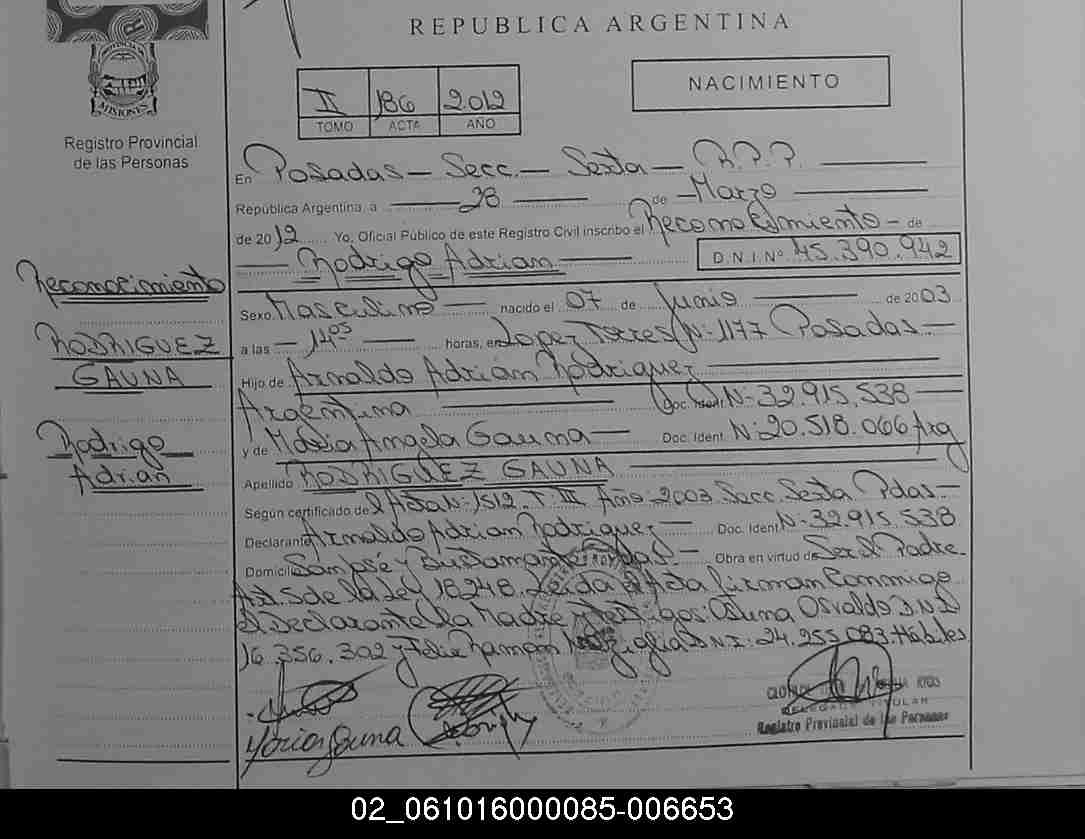 REPUBLICA ARGENTINA
NACIMIENTO
II 186 2012
TOMO ACTA AÑO
MISIONES
Registro Provincial
de las Personas
En Posadas - Secc. - Sexta - R.P.P.
República Argentina, a 28 de Marzo
de 2012 Yo, Oficial Público de este Registro Civil inscribo el Reconocimiento - de
Rodrigo Adrian D.N.I. Nº 45.390.942
Reconocimiento
RODRIGUEZ
GAUNA
Rodrigo
Adrian
Sexo Masculino nacido el 07 de Junio de 2003
a las 14 05 horas, en Lopez Torres Nº 1177 Posadas
Hijo de Arnaldo Adrian Rodriguez
Argentina Doc. Ident. Nº 32.915.538
y de Maria Angela Gauna Doc. Ident. Nº 20.518.066 Arg
Apellido RODRIGUEZ GAUNA
Según certificado de Acta Nº 1512 T. III Año 2003 Secc. Sexta Pdas
Declarante Arnaldo Adrian Rodriguez Doc. Ident. Nº 32.915.538
Domicilio San José y Bustamante Pdas Obra en virtud de Ser el Padre
Art. 5 de la Ley 18248. Leida el Acta firman Conmigo
el Declarante la Madre Testigos: Osuna Osvaldo D.N.I
16.356.302 y Felix Ramon D.N.I: 24.255.083. Habiles
Maria Gauna
DELEGADA TITULAR
Registro Provincial de las Personas
02_061016000085-006653